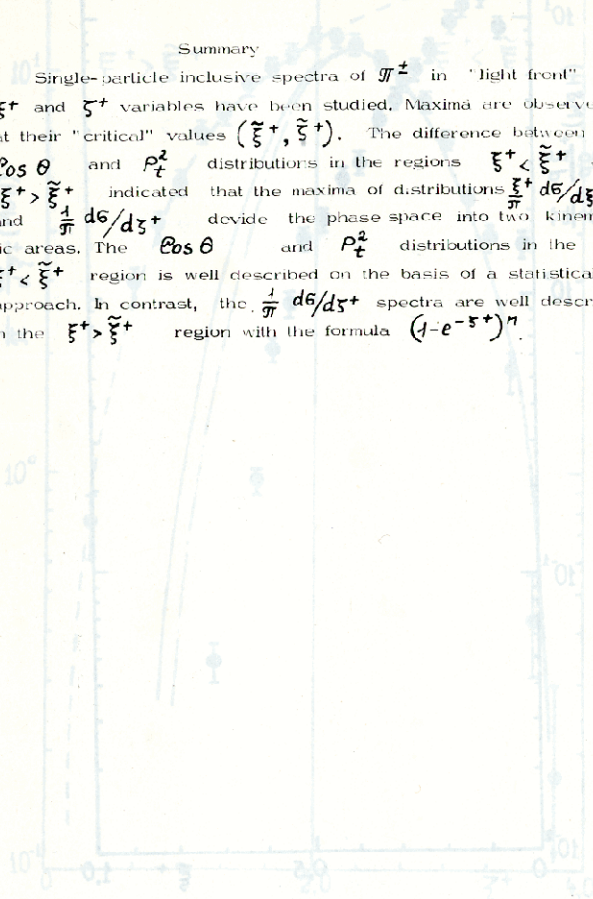 Summary
Single-particle inclusive spectra of π± in "light front"
ξ⁺ and ζ⁺ variables have been studied. Maxima are observe
at their "critical" values (ξ̃⁺, ζ̃⁺). The difference between
Cos θ and P²ₜ distributions in the regions ξ⁺ < ξ̃⁺
ξ⁺ > ξ̃⁺ indicated that the maxima of distributions ξ⁺/π dσ/dξ
and 1/π dσ/dζ⁺ devide the phase space into two kinem
ic areas. The Cos θ and P²ₜ distributions in the
ξ⁺ < ξ̃⁺ region is well described on the basis of a statistica
approach. In contrast, the 1/π dσ/dζ⁺ spectra are well descr
n the ξ⁺ > ξ̃⁺ region with the formula (1-e⁻ζ⁺)ⁿ.
10⁰
10¹
10⁻¹
0
1.0
2.0
ξ⁺
ζ⁺
4.0